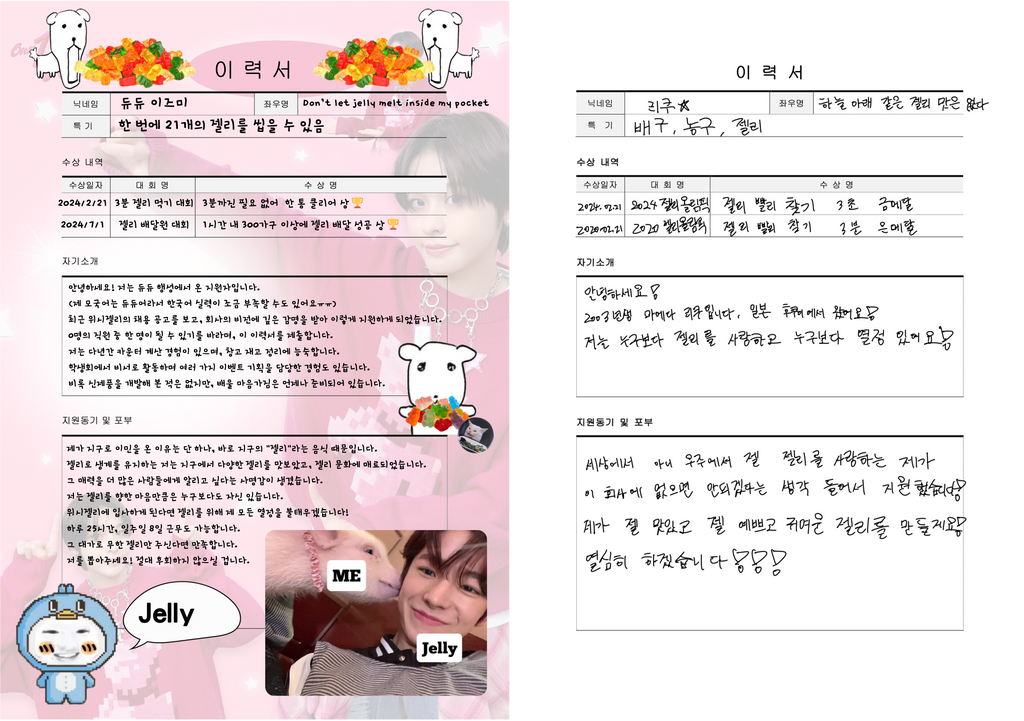 이 력 서
닉네임 듀듀 이즈미 좌우명 Don't let jelly melt inside my pocket
특 기 한 번에 21개의 젤리를 씹을 수 있음
수상 내역
수상일자 대 회 명 수 상 명
2024/2/21 3분 젤리 먹기 대회 3분까진 필요 없어 한 통 클리어 상🏆
2024/7/1 젤리 배달원 대회 1시간 내 300가구 이상에 젤리 배달 성공 상🏆
자기소개
안녕하세요! 저는 듀듀 행성에서 온 지원자입니다.
(제 모국어는 듀듀어라서 한국어 실력이 조금 부족할 수도 있어요ㅠㅠ)
최근 위시젤리의 채용 공고를 보고, 회사의 비전에 깊은 감명을 받아 이렇게 지원하게 되었습니다.
0명의 직원 중 한 명이 될 수 있기를 바라며, 이 이력서를 제출합니다.
저는 다년간 카운터 계산 경험이 있으며, 창고 재고 정리에 능숙합니다.
학생회에서 비서로 활동하며 여러 가지 이벤트 기획을 담당한 경험도 있습니다.
비록 신제품을 개발해 본 적은 없지만, 배울 마음가짐은 언제나 준비되어 있습니다.
지원동기 및 포부
제가 지구로 이민을 온 이유는 단 하나, 바로 지구의 "젤리"라는 음식 때문입니다.
젤리로 생계를 유지하는 저는 지구에서 다양한 젤리를 맛보았고, 젤리 문화에 매료되었습니다.
그 매력을 더 많은 사람들에게 알리고 싶다는 사명감이 생겼습니다.
저는 젤리를 향한 마음만큼은 누구보다도 자신 있습니다.
위시젤리에 입사하게 된다면 젤리를 위해 제 모든 열정을 불태우겠습니다!
하루 25시간, 일주일 8일 근무도 가능합니다.
그 대가로 무한 젤리만 주신다면 만족합니다.
저를 뽑아주세요! 절대 후회하지 않으실 겁니다.
ME
Jelly
Jelly
이 력 서
닉네임 리쿠☆ 좌우명 하늘 아래 같은 젤리 맛은 없다
특 기 배구, 농구, 젤리
수상 내역
수상일자 대 회 명 수 상 명
2024.02.21 2024 젤리올림픽 젤리 빨리 찾기 3초 금메달
2020.02.21 2020 젤리올림픽 젤리 빨리 찾기 3분 은메달
자기소개
안녕하세요!
2003년생 마에다 리쿠입니다, 일본 후쿠이에서 왔어요!
저는 누구보다 젤리를 사랑하고 누구보다 열정 있어요!
지원동기 및 포부
세상에서 아니 우주에서 젤 젤리를 사랑하는 제가
이 회사에 없으면 안되겠다는 생각 들어서 지원했습니다!
제가 젤 맛있고 젤 예쁘고 귀여운 젤리를 만들게요!
열심히 하겠습니다!!!